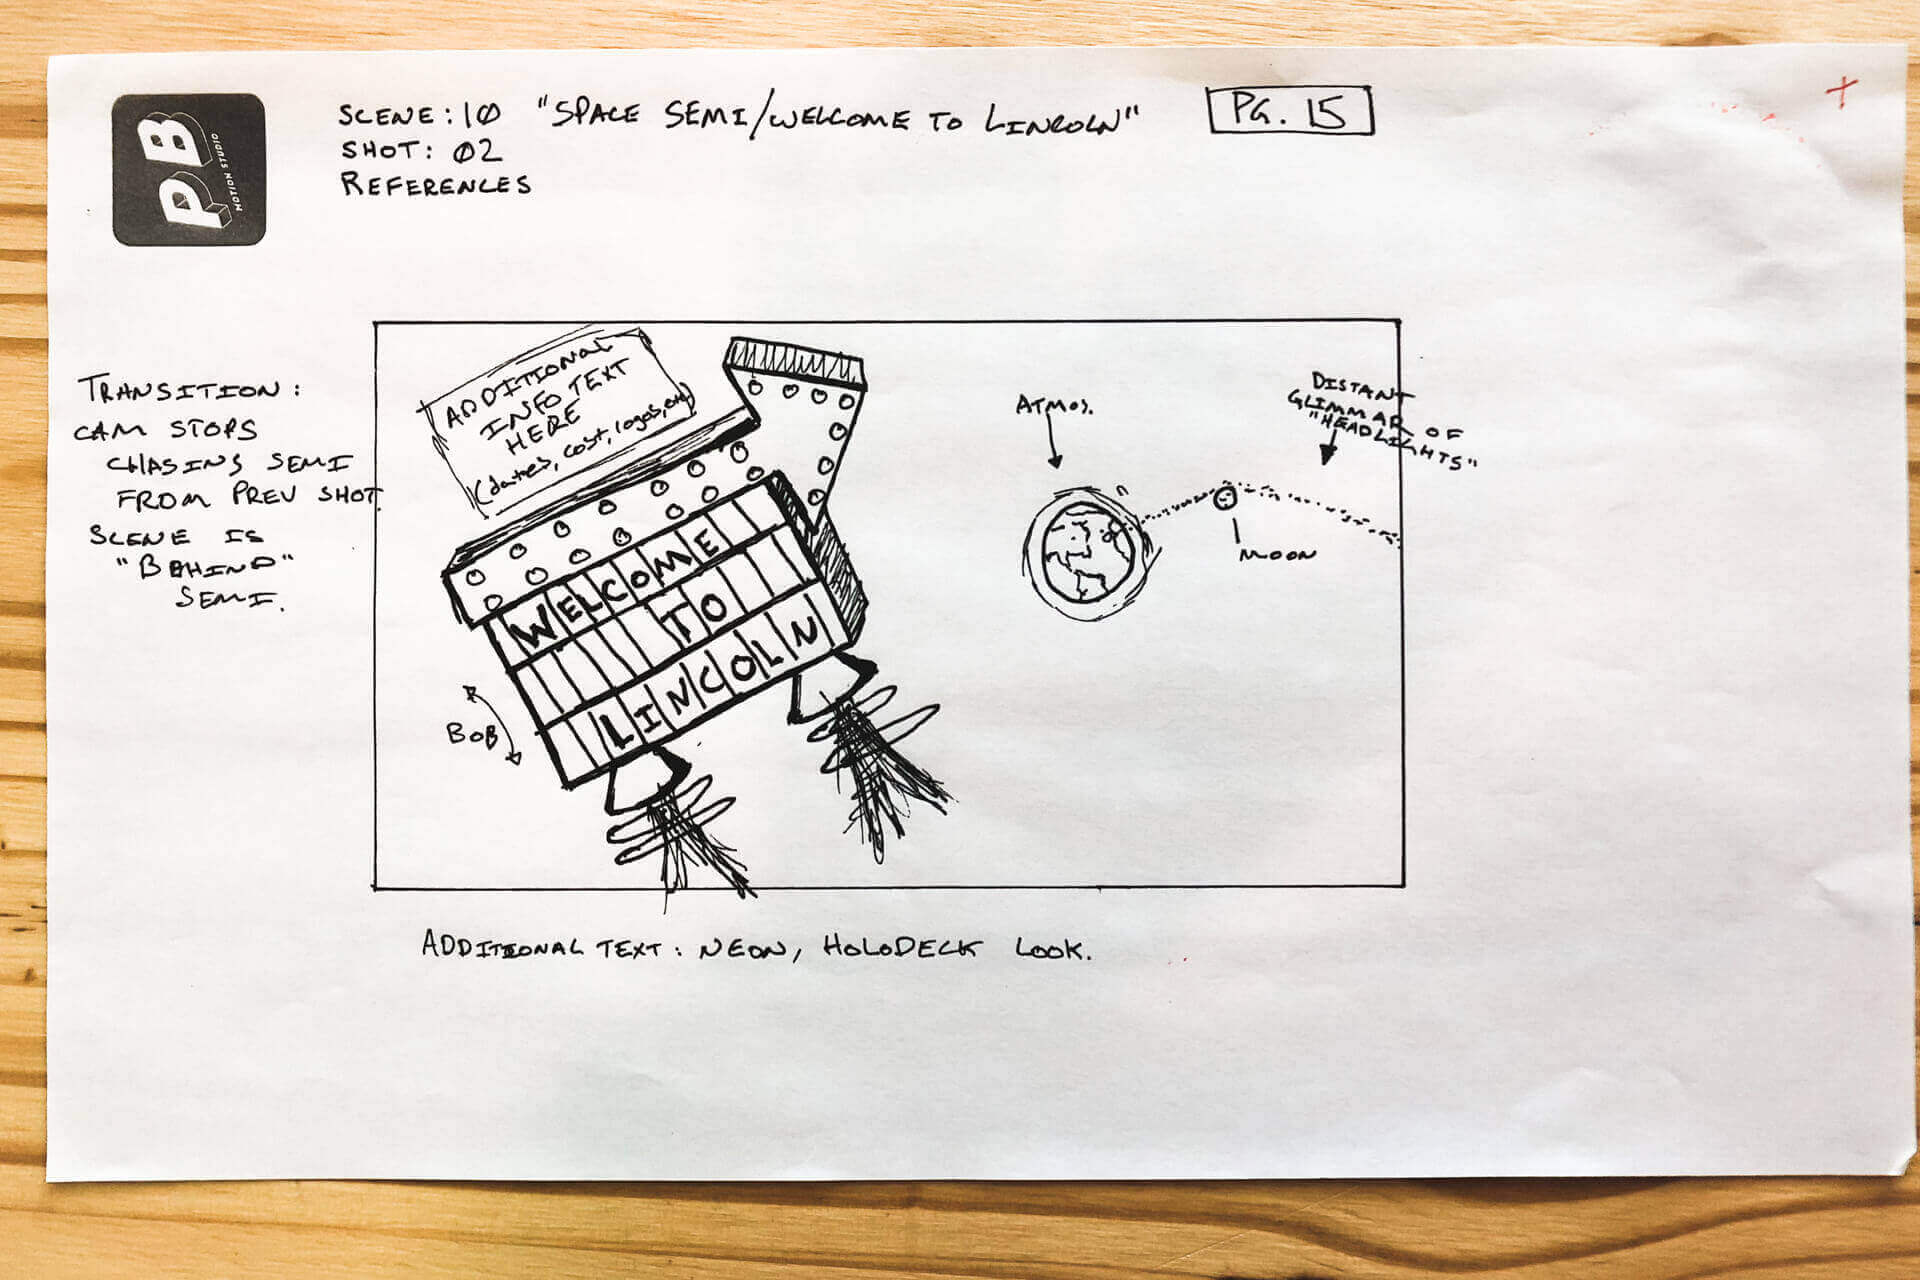 PB
MOTION STUDIO
SCENE: 10 "SPACE SEMI/WELCOME TO LINCOLN"
SHOT: 02
REFERENCES
PG. 15
TRANSITION:
CAM STOPS
CHASING SEMI
FROM PREV SHOT.
SCENE IS
"BEHIND"
SEMI.
ADDITIONAL
INFO TEXT
HERE
(dates, cost, logos, etc)
WELCOME
TO
LINCOLN
BOB
ATMOS.
DISTANT
GLIMMAR OF
"HEADLIGHTS"
MOON
ADDITIONAL TEXT: NEON, HOLODECK LOOK.